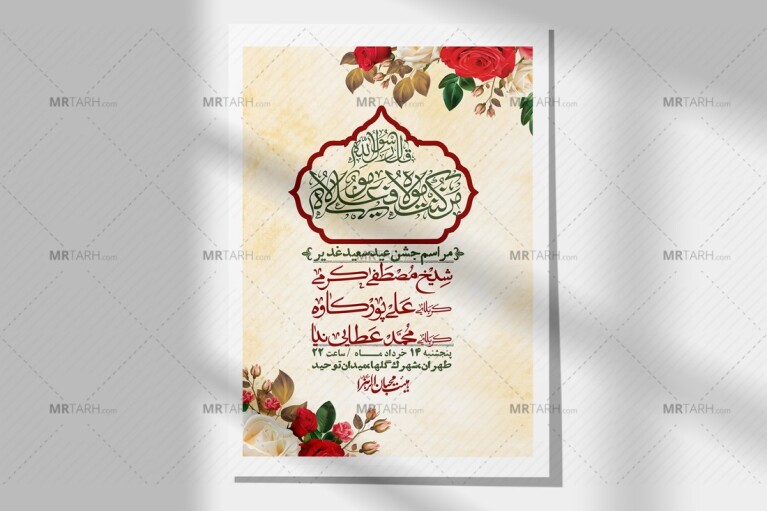 قال رسول الله
من کنت مولاه فهذا علی مولاه
مراسم جشن عید سعید غدیر
شیخ مصطفی کرمی
کربلائی علی پورکاوه
کربلائی محمد عطایی نیا
پنجشنبه ۱۴ خرداد ماه / ساعت ۲۲
طهران، شهرک گلها، میدان توحید
بیت محبان الزهرا
MRTARH.com